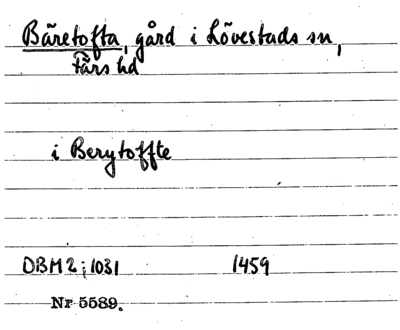 Bäretofta, gård i Lövestads sn,
Färs hd
i Berytoffte
DBM 2; 1031 1459
Nr 5589.